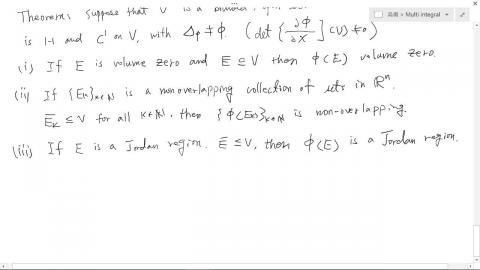 高微 > Multi integral
Theorem: Suppose that V is a bounded, open
is 1-1 and C' on V, with Δφ ≠ 0. (det [∂φ/∂x] (V) ≠ 0)
(i) If E is volume zero and E̅ ⊆ V then φ(E) volume zero.
(ii) If {E_k}_{k∈ℕ} is a nonoverlapping collection of sets in ℝⁿ.
E̅_k ⊆ V for all k∈ℕ, then {φ(E_k)}_{k∈ℕ} is non-overlapping.
(iii) If E is a Jordan region. E̅ ⊆ V, then φ(E) is a Jordan region.